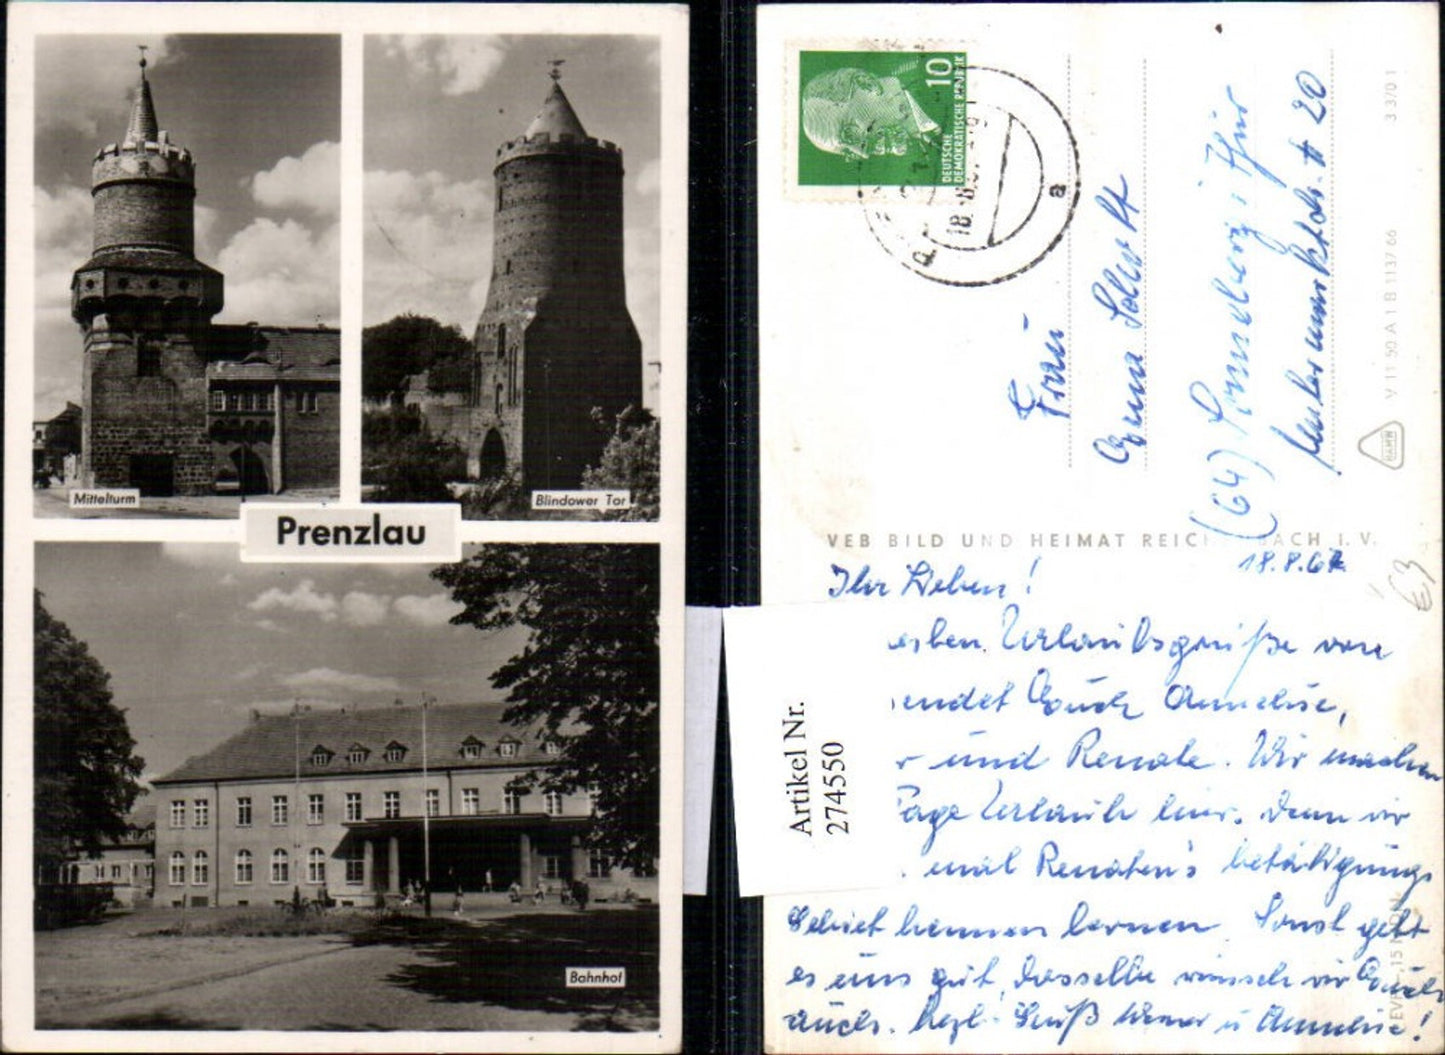 Mittelturm
Blindower Tor
Prenzlau
Bahnhof
10
DEUTSCHE
DEMOKRATISCHE REPUBLIK
18
a
Frau
Anna
(64) Sonneberg i Thür
20
3 370 1
V 11 50 A 1 B 1137 66
VEB BILD UND HEIMAT REIC BACH I. V.
18.8.67
Ihr Lieben!
Urlaubsgrüße von
endet Euch Annelise,
und Renate. Wir machen
Tage Urlaub hier. Denn wir
mal Renaten's betätigungs
Gebiet kennen lernen. Sonst geht
es uns gut, dasselbe wünschen wir Euch
auch. Herzl. Gruß Werner u Annelise!
Artikel Nr.
274550